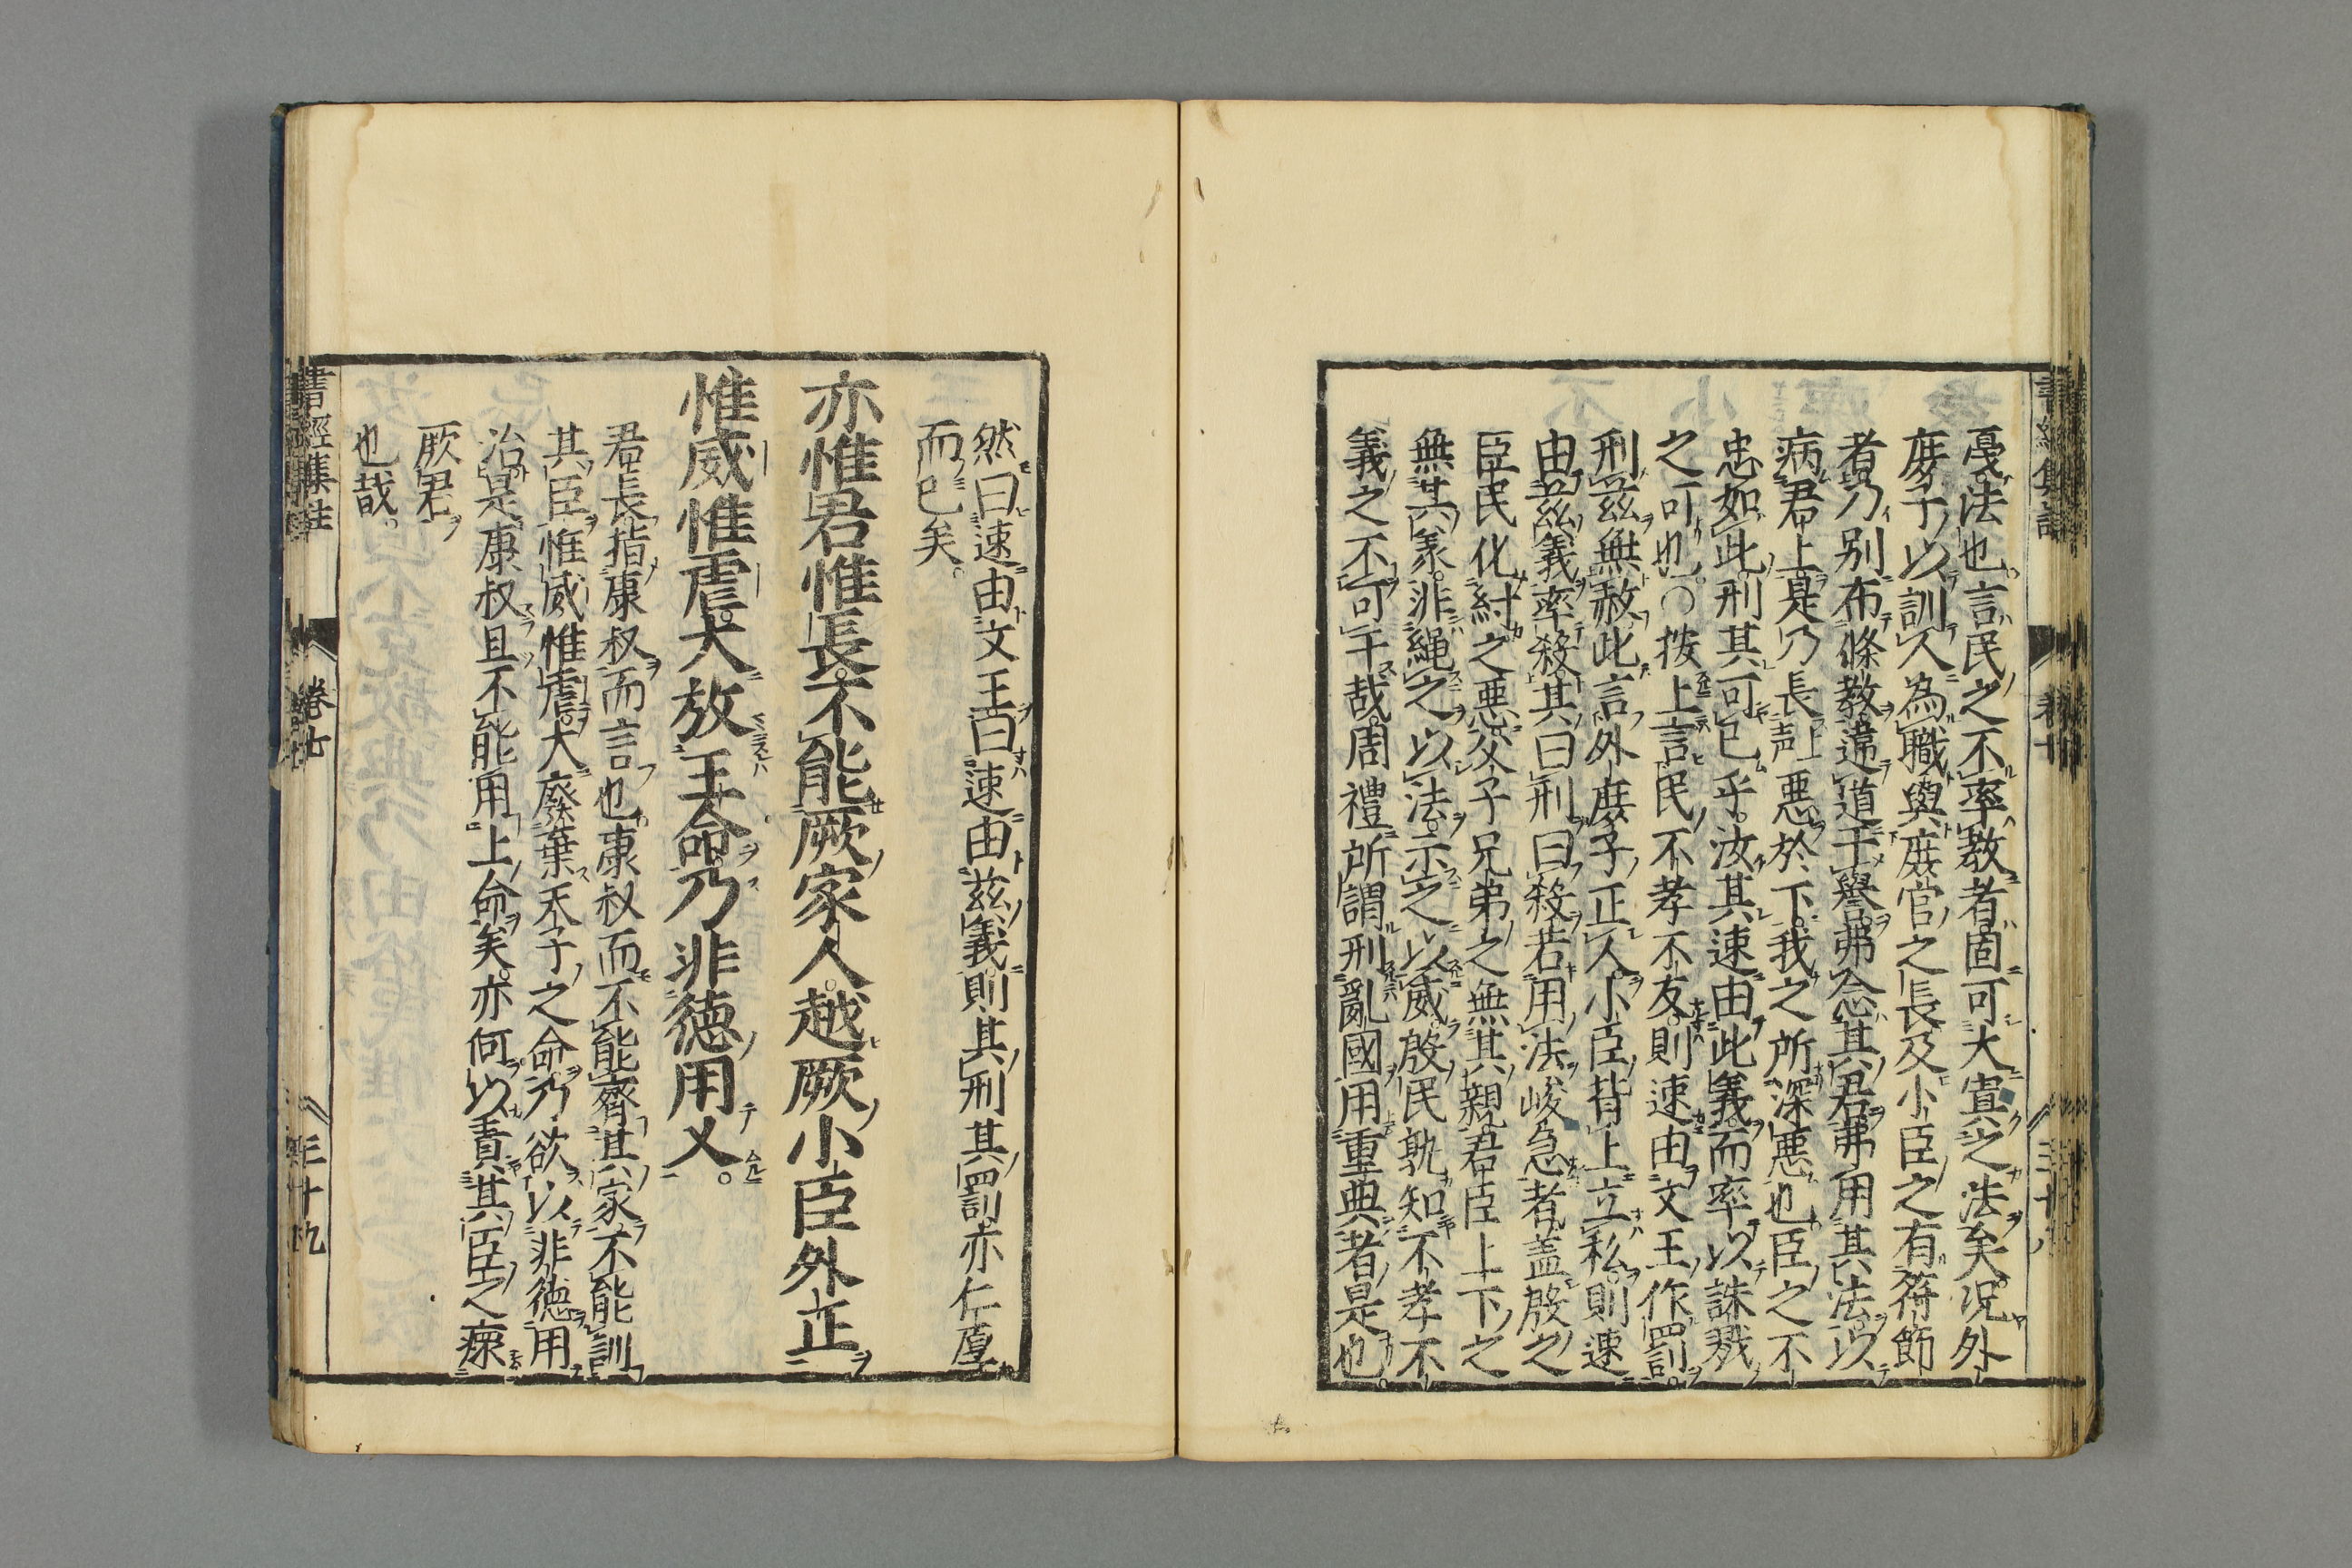 戞法也言民之不率教者固可大寘之法矣況外
庶子以訓人為職與庶官之長及小臣之有符節
者乃別布條教違道干譽弗念其君弗用其法以
病君上是乃長惡於下我之所深惡也臣之不
忠如此刑其可已乎汝其速由此義而率以誅戮
之可也○按上言民不孝不友則速由文王作罰
刑茲無赦此言外庶子正人小臣背上立私則速
由茲義率殺其曰刑曰殺若用法峻急者蓋殷之
臣民化紂之惡父子兄弟之無其親君臣上下之
無其義非繩之以法示之以威殷民孰知不孝不
義之不可干哉周禮所謂刑亂國用重典者是也
然曰速由文王曰速由茲義則其刑其罰亦仁厚
而已矣
亦惟君惟長不能厥家人越厥小臣外正
惟威惟虐大放王命乃非德用乂
君長指康叔而言也康叔而不能齊其家不能訓
其臣惟威惟虐大廢棄天子之命乃欲以非德用
治是康叔且不能用上命矣亦何以責其臣之瘝
厥君
也哉
書經集註
卷七
三十九